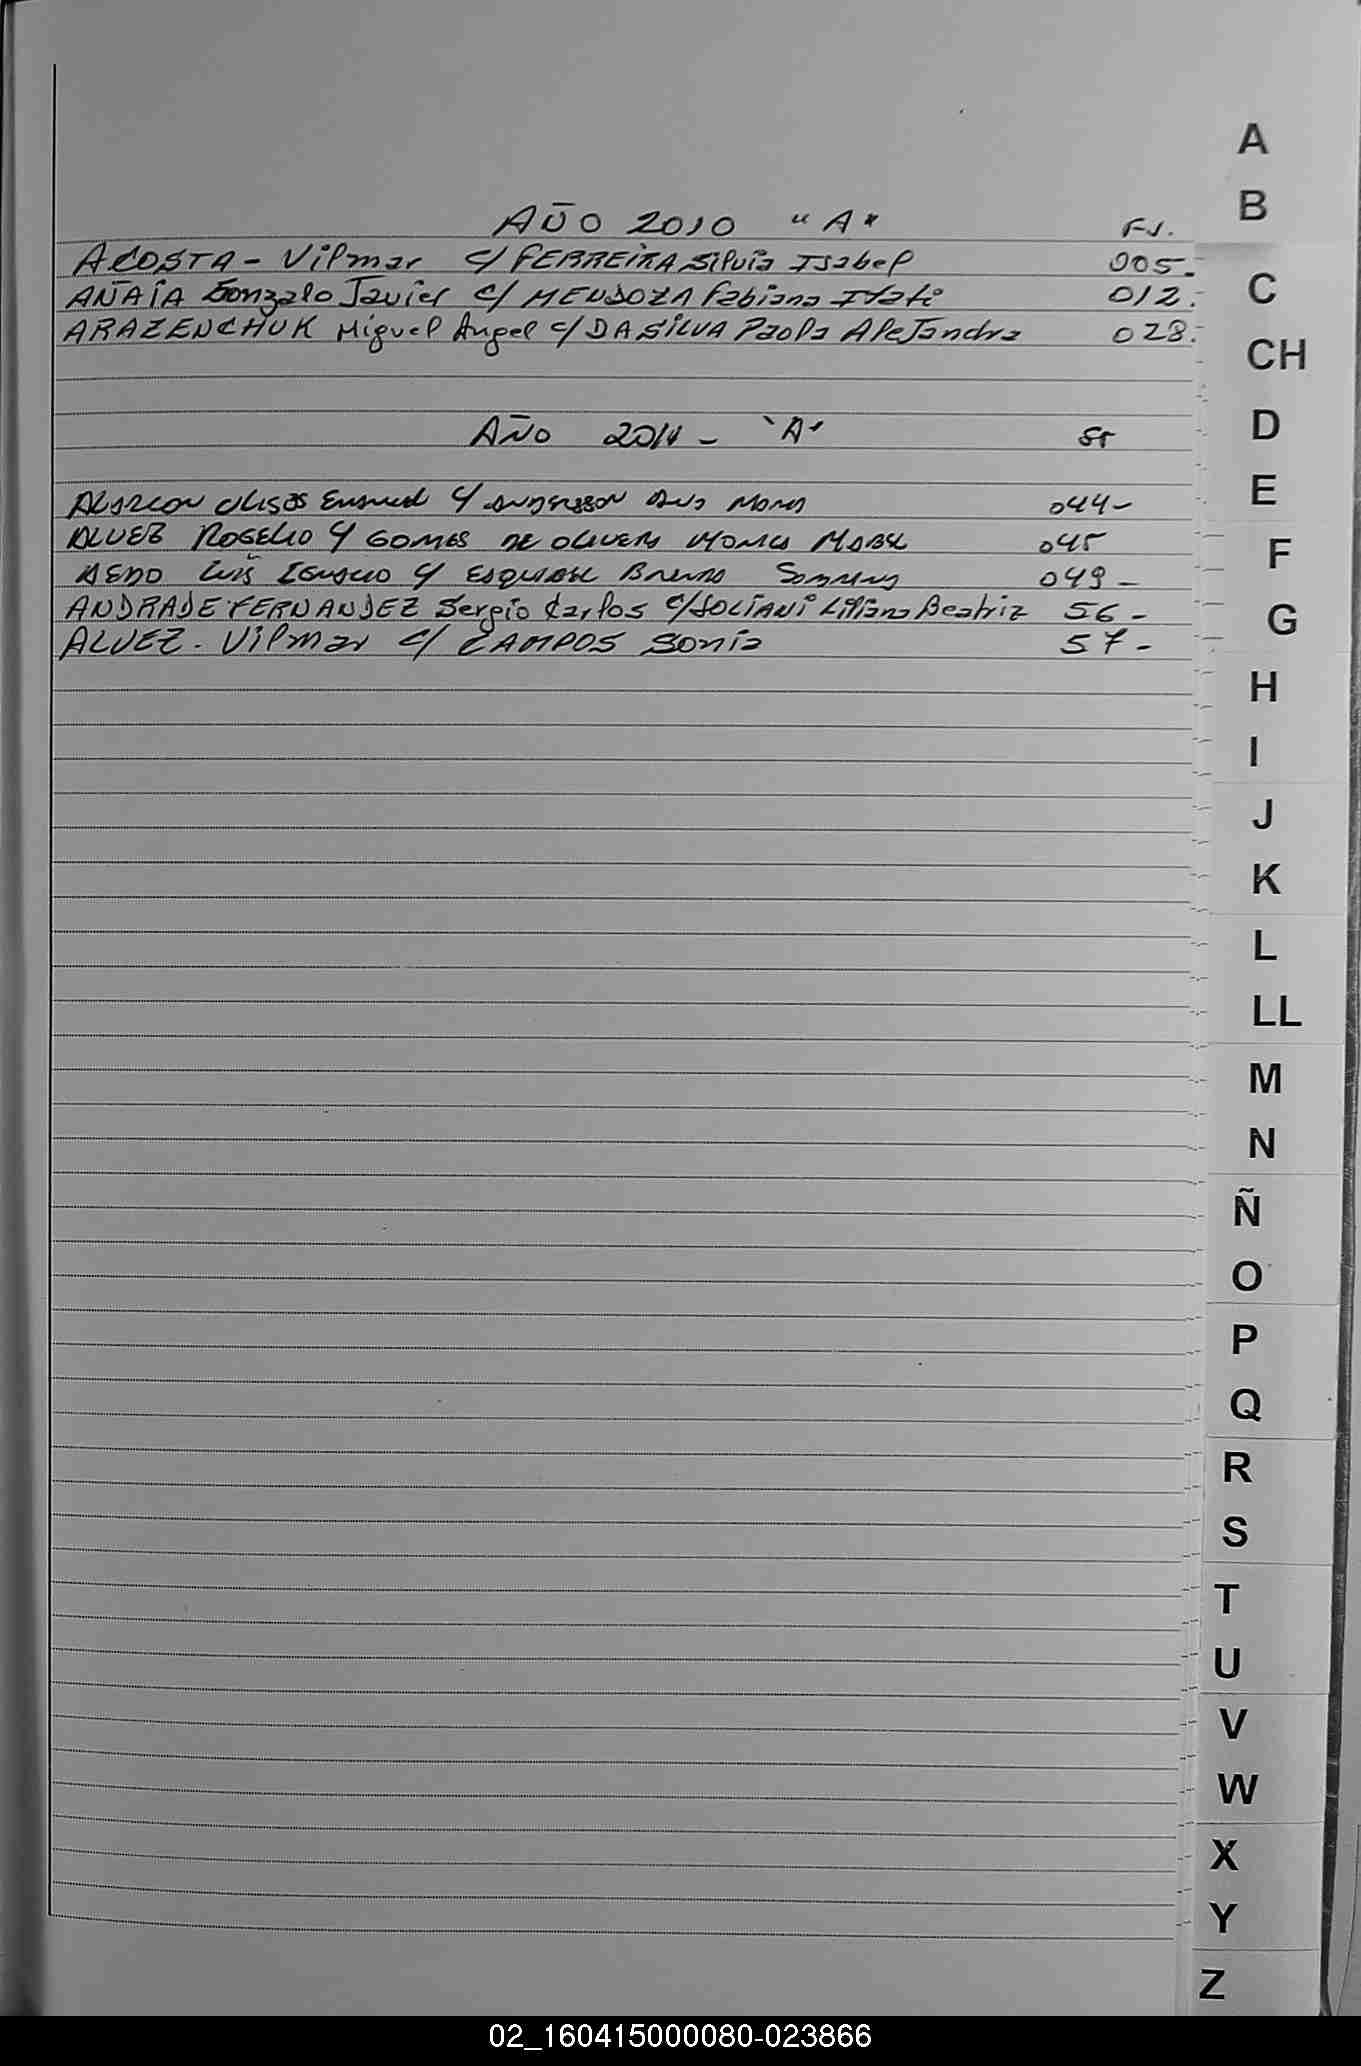 AÑO 2010 "A"
FS.
ACOSTA - Vilmar c/ FERREIRA Silvia Isabel 005.
AÑAIA Gonzalo Javier c/ MENDOZA Fabiana Itati 012.
ARAZENCHUK Miguel Angel c/ DA SILVA Paola Alejandra 028.
AÑO 2011 - "A"
ALARCON Ulises Emanuel c/ ANDERSSON Ana Maria 044-
ALVEZ ROGELIO c/ GOMES DE OLIVERA MONICA MABEL 045
Luis Ignacio c/ ESQUIBEL 049-
ANDRADE FERNANDEZ Sergio Carlos c/ SOLIANI Liliana Beatriz 56-
ALVEZ. Vilmar c/ CAMPOS Sonia 57-
A
B
C
CH
D
E
F
G
H
I
J
K
L
LL
M
N
Ñ
O
P
Q
R
S
T
U
V
W
X
Y
Z
02_160415000080-023866